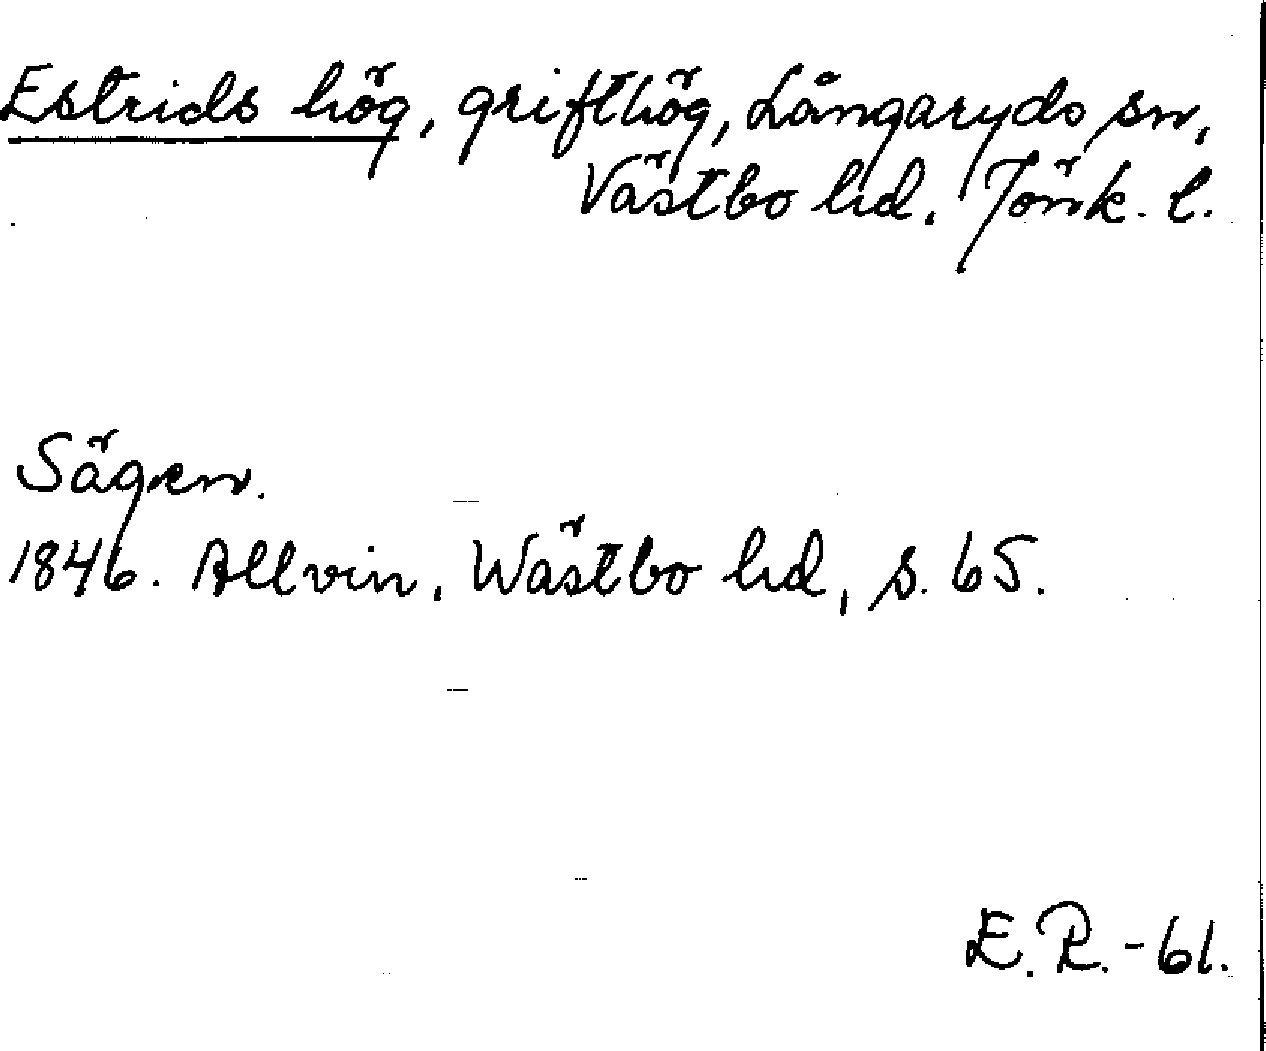 Estrids hög, grifthög, Långaryds sn,
Västbo hd. Jönk. l.
Sägen.
1846. Allvin, Wästbo hd, s. 65.
E. R. - 61.